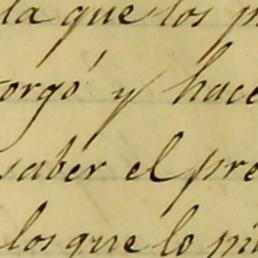 da que los p
torgó y hace
saber el pre
los que lo pi